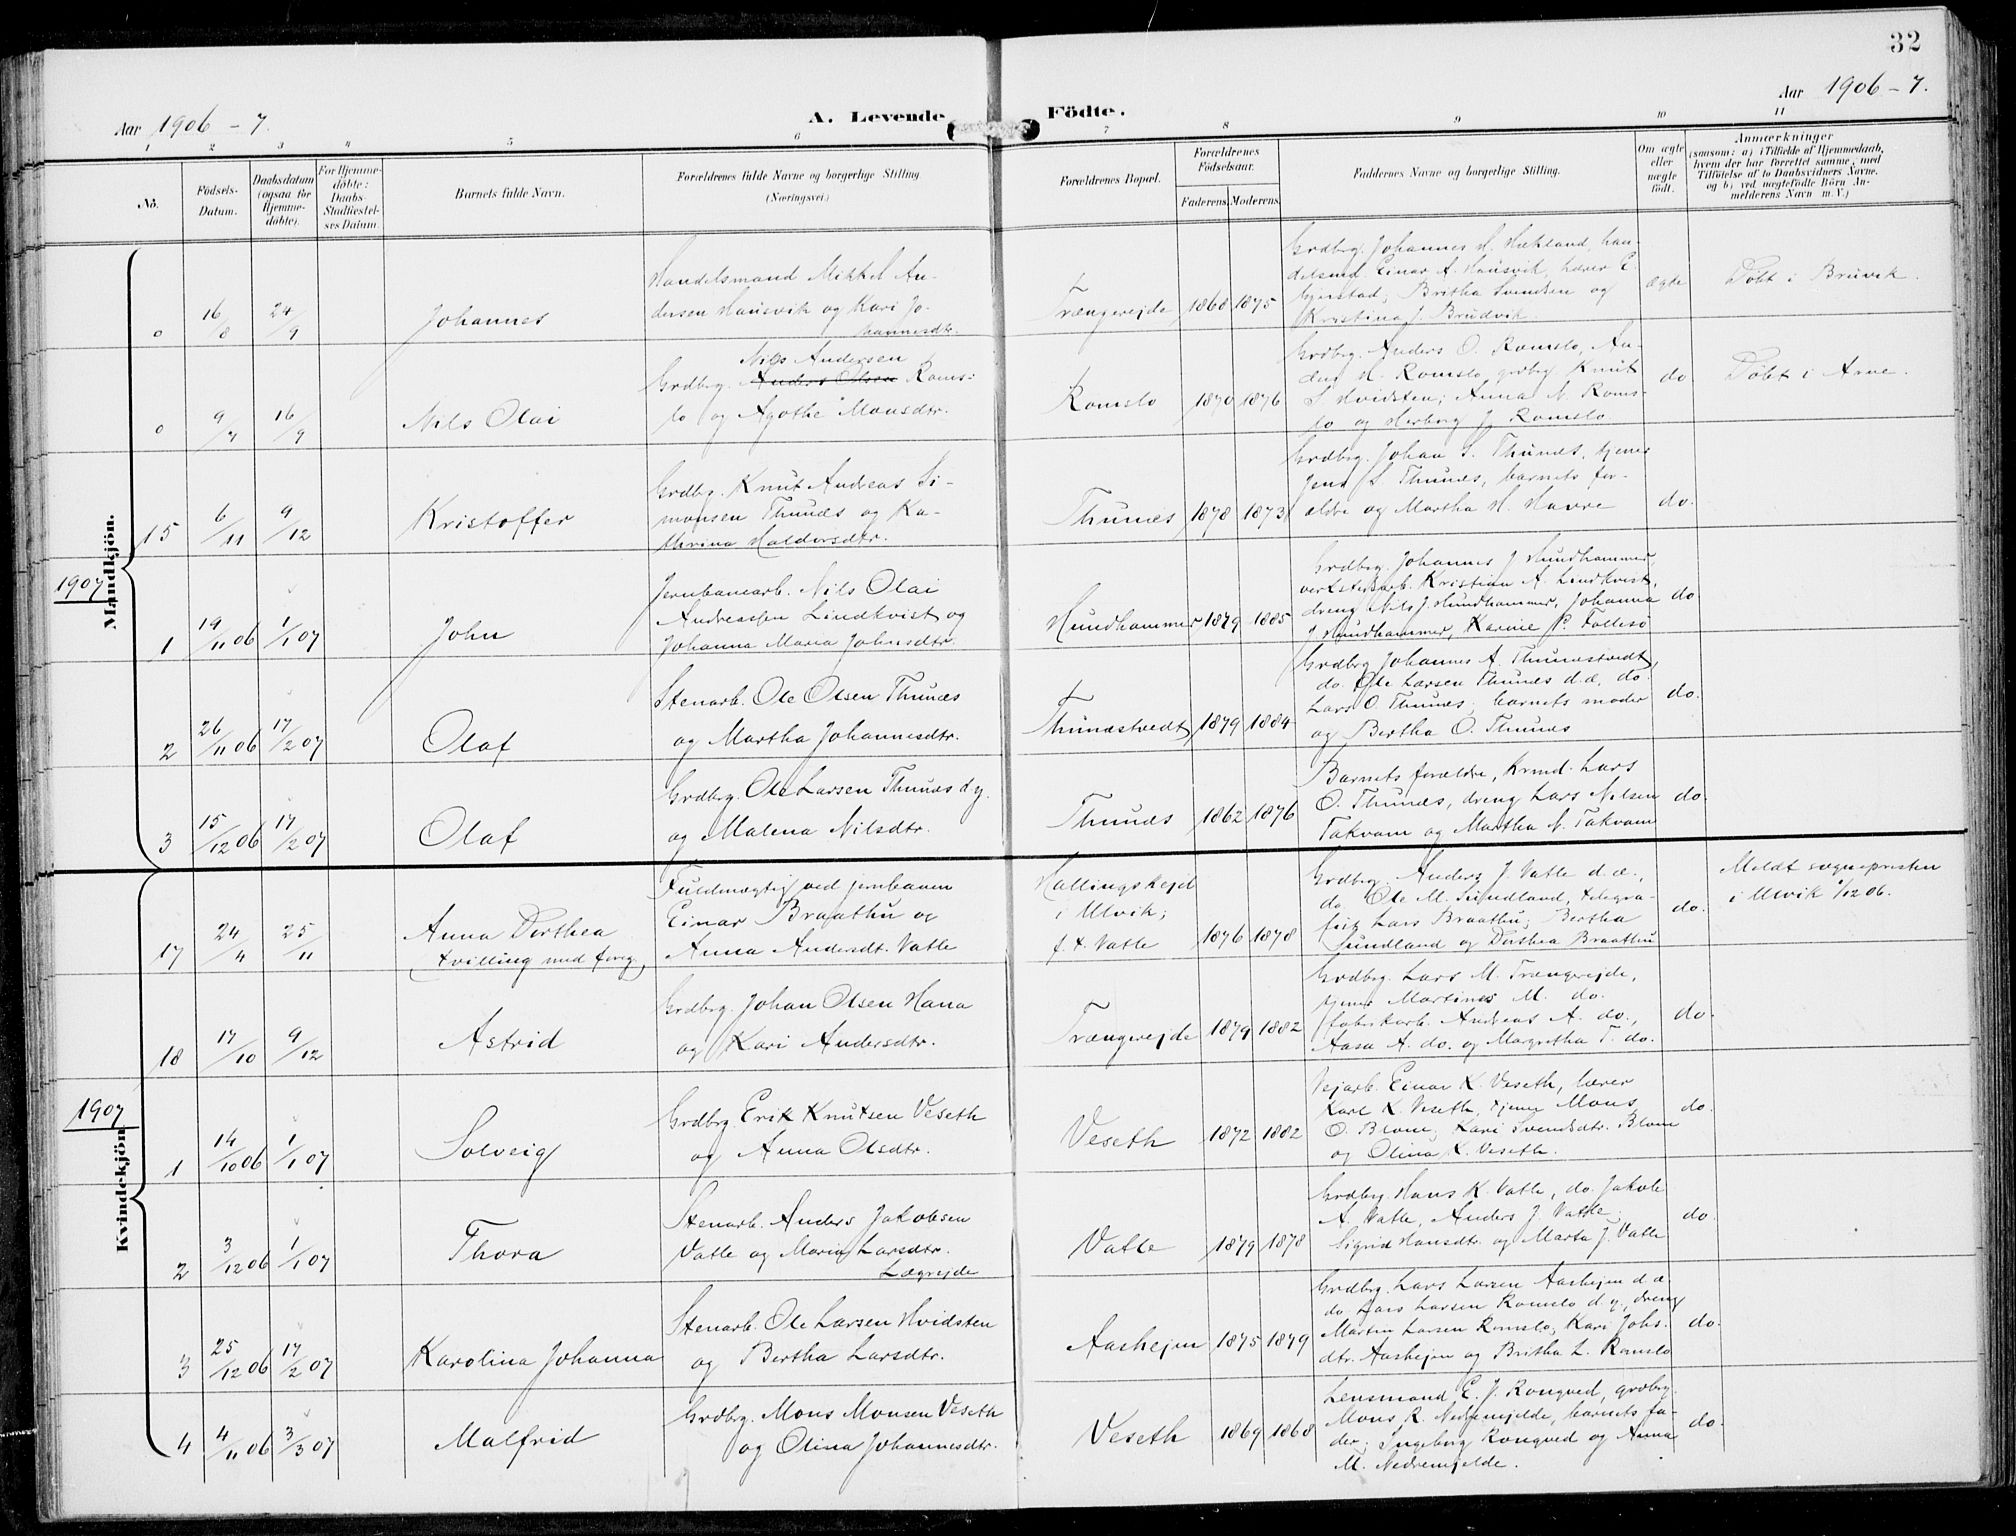 32
Aar 1906 - 7.
A. Levende
Födte.
Aar 1906 - 7.
1 2 3 4 5 6 7 8 9 10 11
No.
Födsels-
Datum.
Daabsdatum
(ogsaa for
Hjemme-
döbte).
For Hjemme-
döbte:
Daabs-
Stadfæstel-
ses Datum.
Barnets fulde Navn.
Forældrenes fulde Navne og borgerlige Stilling
(Næringsvei.)
Forældrenes Bopæl.
Forældrenes
Födselsaar.
Faderens. Moderens.
Faddernes Navne og borgerlige Stilling.
Om ægte
eller
uægte
födt.
Anmærkninger
(saasom: a) i Tilfælde af Hjemmedaab,
hvem der har forrettet samme, med
Tilföielse af to Daabsvidners Navne,
og b) ved uægtefödte Börn An-
melderens Navn m. V.)
Mandkjön.
0 16/8 24/9 Johannes
Handelsmand Mikkel An-
dersen Hausvik og Kari Jo-
hannesdtr.
Trængerejde 1868 1875
Grdbrg. Johannes M. Hækland, han-
delsmd. Einar A. Hausvik, lærer E.
Gjerstad; Britha Svendsen og
Kristina J. Brudvik.
ægte
Döbt i Bruvik.
0 9/7 16/9 Nils Olai
Nils Andersen
Grdbrg. Anders Olsen Roms-
lo og Agothe Monsdtr.
Romslo 1870 1876
Grdbrg. Anders O. Romslo, An-
ders M. Romslo, grdbrg Knut
S. Hvidsten; Anna N. Roms-
lo og Herborg J. Romslo.
do
Döbt i Arne.
15 6/11 9/12 Kristoffer
Grdbrg. Knut Andreas Si-
monsen Thunæs og Ka-
thrina Haldorsdtr.
Thunæs 1878 1873
Grdbrg. Johan S. Thunæs, tjener
Jens S. Thunæs, barnets for-
ældre og Martha H. Havre
do.
1907
1 19/11 06 1/1 07 John
Jernbanearb. Nils Olai
Andreassen Lindkvist og
Johanna Maria Johnsdtr.
Hundhammer 1879 1885
Grdbrg. Johannes J. Hundhammer,
verkstedarb. Kristian A. Lindkvist,
dreng Nils J. Hundhammer, Johanna
J. Hundhammer, Karine P. Follesö
do
2 26/11 06 17/2 07 Olaf
Stenarb. Ole Olsen Thunæs
og Martha Johannesdtr.
Thunæstvedt 1879 1884
Grdbrg Johannes A. Thunæstvedt,
do. Ole Larsen Thunæs d.æ., do.
Lars O. Thunæs; barnets moder
og Bertha O. Thunæs
do.
3 15/12 06 17/2 07 Olaf
Grdbrg. Ole Larsen Thunæs d y.
og Malena Nilsdtr.
Thunæs 1862 1876
Barnets forældre, krmd. Lars
O. Thunæs, dreng Lars Nilsen
Takvam og Martha N. Takvam
do.
Kvindekjön.
17 24/4 25/11 Anna Dorthea
tvilling med foreg.
Fuldmægtig ved jernbanen
Einar Braathu og
Anna Andersdt. Vatle
Hallingskejd
i Ulvik;
f.t. Vatle 1876 1878
Grdbrg. Anders J. Vatle d.æ.,
do. Ole M. Sundland, telegra-
fist Lars Braathu; Bertha
Sundland og Dorthea Braathu
do.
Meldt sognepresten
i Ulvik 1/12 06.
18 17/10 9/12 Astrid
Grdbrg. Johan Olsen Hana
og Kari Andersdtr.
Trængerejde 1879 1882
Grdbrg. Lars M. Trængerejde,
tjener Martines M. do.
fabrikarb. Andreas A. do.,
Aasa A. do. og Margretha T. do.
do.
1907
1 14/10 06 1/1 07 Solveig
Grdbrg. Erik Knutsen Veseth
og Anna Olsdtr.
Veseth 1872 1882
Vejarb. Einar K. Veseth, lærer
Karl K. Veseth, tjener Mons
O. Blom; Kari Svendsdtr. Blom
og Olina K. Veseth.
do.
2 3/12 06 1/1 07 Thora
Stenarb. Anders Jakobsen
Vatle og Maria Larsdtr.
Lægrejde
Vatle 1879 1878
Grdbrg. Hans K. Vatle, do. Jakob
A. Vatle, Anders J. Vatle;
Sigrid Hansdtr. og Marta J. Vatle
do.
3 25/12 06 17/2 07 Karolina Johanna
Stenarb. Ole Larsen Hvidsten
og Bertha Larsdtr.
Aashejm 1875 1879
Grdbrg. Lars Larsen Aashejm d.æ.
do. Lars Larsen Romslo d.y., dreng
Martin Larsen Romslo; Kari Johs.
dtr. Aashejm og Britha L. Romslo
do.
4 4/11 06 3/3 07 Malfrid
Grdbrg. Mons Monsen Veseth
og Olina Johannesdtr.
Veseth 1869 1868
Lensmand E. J. Rongved, grdbrg.
Mons R. Nedremjelde, barnets fa-
der; Ingeborg Rongved og Anna
M. Nedremjelde.
do.